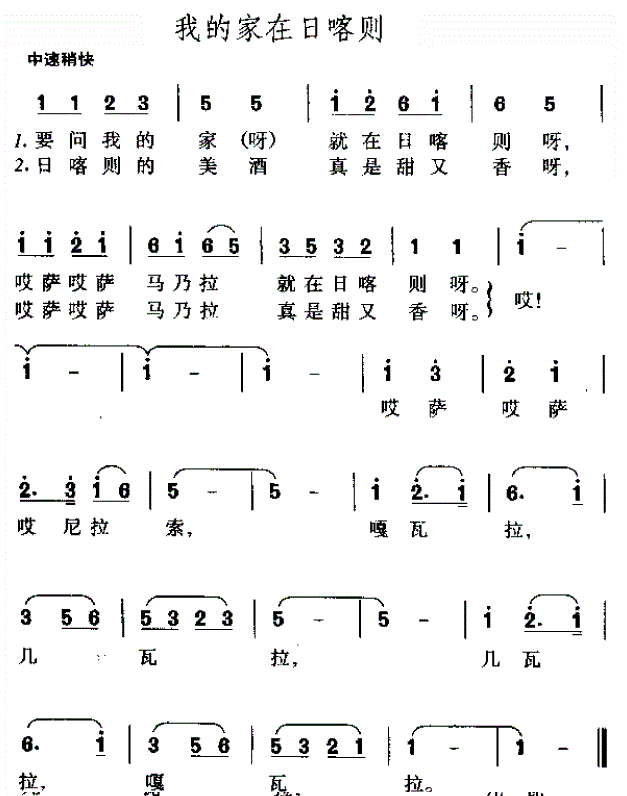 我的家在日喀则
中速稍快
1 1 2 3 | 5 5 | i 2 6 i | 6 5 |
1.要问我的 家(呀) 就在日喀 则呀,
2.日喀则的 美酒 真是甜又 香呀,
i i 2 i | 6 i 6 5 | 3 5 3 2 | 1 1 | i –
哎萨哎萨 马乃拉 就在日喀 则呀。 哎!
哎萨哎萨 马乃拉 真是甜又 香呀。
i – | i – | i – | i 3 | 2 i |
哎萨 哎萨
2. 3 i 6 | 5 – | 5 – | i 2. i | 6. i |
哎尼拉 索, 嘎瓦 拉,
3 5 6 | 5 3 2 3 | 5 – | 5 – | i 2. i |
几 瓦 拉, 几瓦
6. i | 3 5 6 | 5 3 2 1 | 1 – | 1 – ‖
拉, 嘎 瓦 拉。